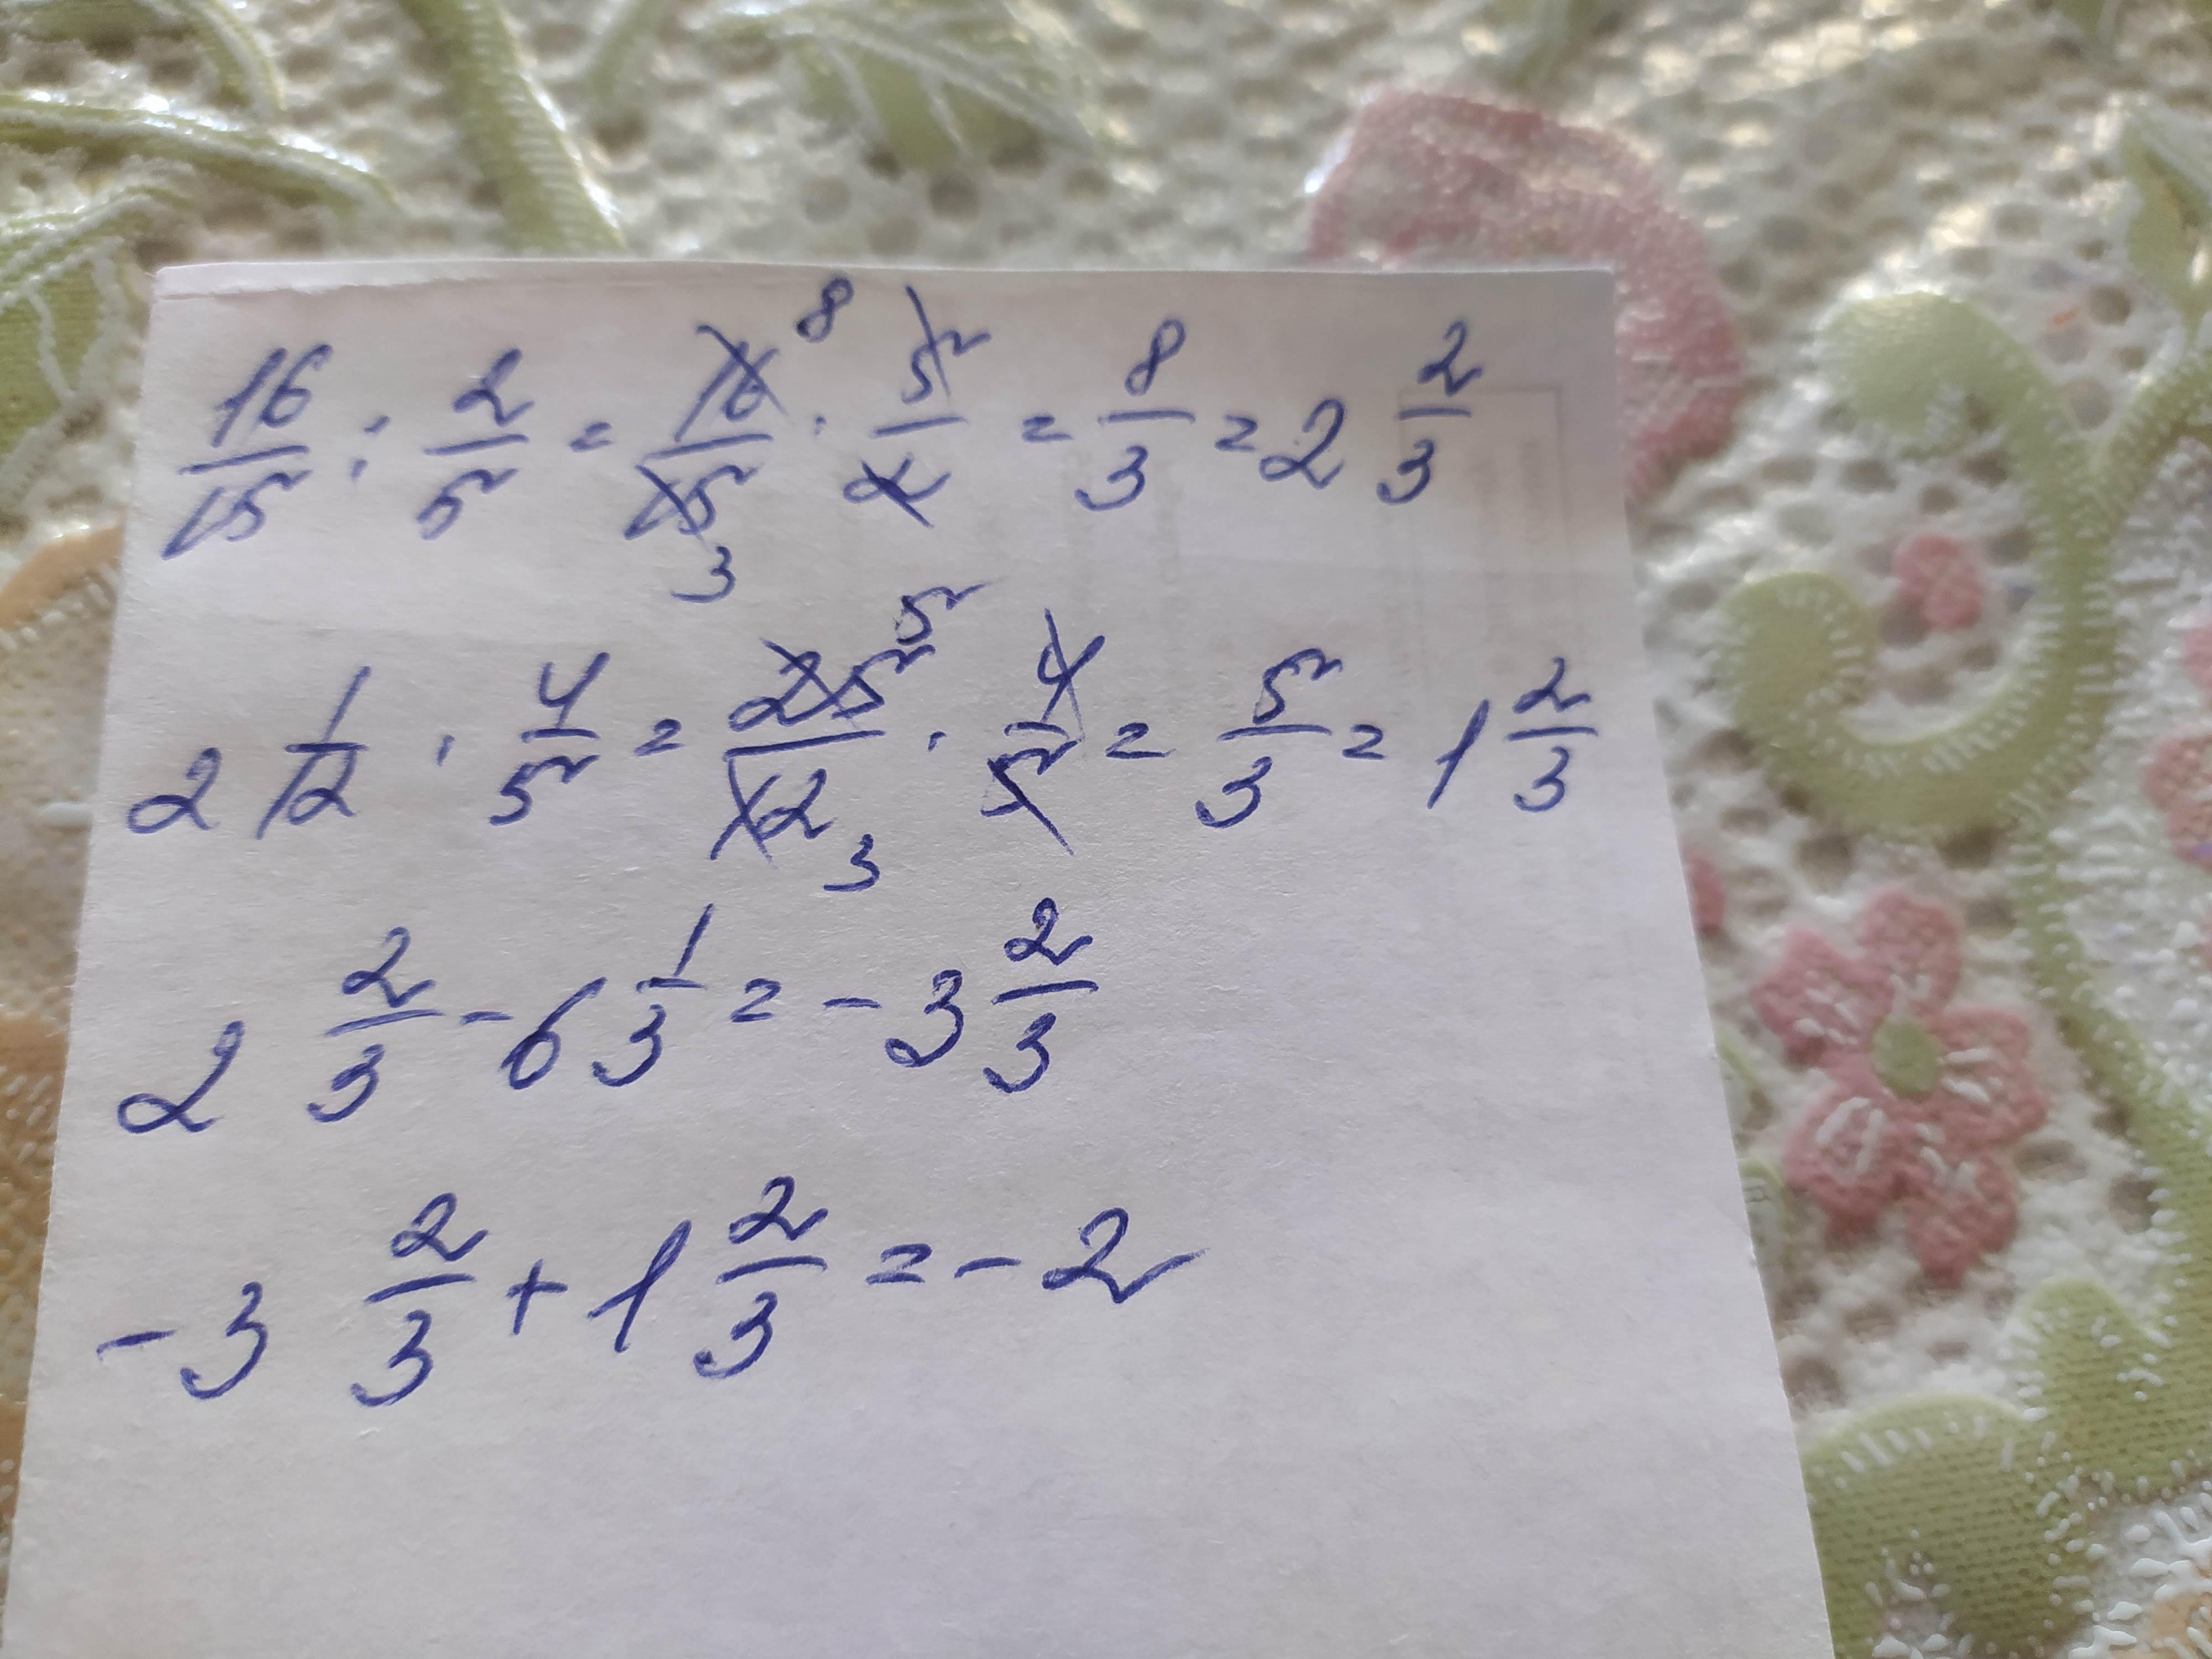 16/15 : 2/5 = 16/15 · 5/2 = 8/3 = 2 2/3
2 1/12 · 4/5 = 25/12 · 4/5 = 5/3 = 1 2/3
2 2/3 - 6 1/3 = - 3 2/3
- 3 2/3 + 1 2/3 = - 2